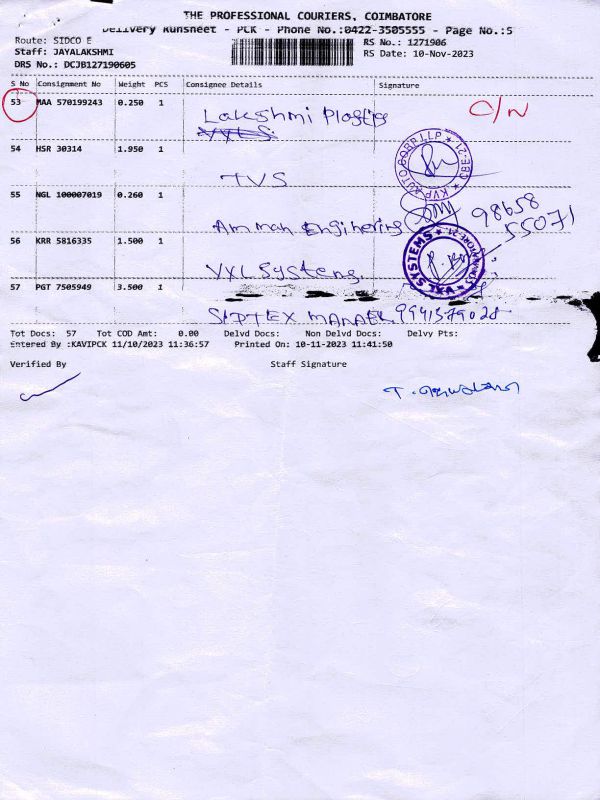 THE PROFESSIONAL COURIERS, COIMBATORE
Delivery Runsheet - PCK - Phone No.:0422-3505555 - Page No.:5
Route: SIDCO E
RS No.: 1271906
Staff: JAYALAKSHMI
RS Date: 10-Nov-2023
DRS No.: DCJB127190605
S No Consignment No Weight PCS Consignee Details Signature
53 MAA 570199243 0.250 1 Lakshmi Plastics O/N
VXLS
54 HSR 30314 1.950 1
TVS
KVP AUTO CORP LLP ★ CBE-21 ★
55 NGL 100007019 0.260 1
Amman Enginering
98658
55071
56 KRR 5816335 1.500 1
VXL Systems
VXL SYSTEMS
57 PGT 7505949 3.500 1
Tot Docs: 57 Tot COD Amt: 0.00 Delvd Docs: Non Delvd Docs: Delvy Pts:
Entered By :KAVIPCK 11/10/2023 11:36:57 Printed On: 10-11-2023 11:41:50
Verified By Staff Signature